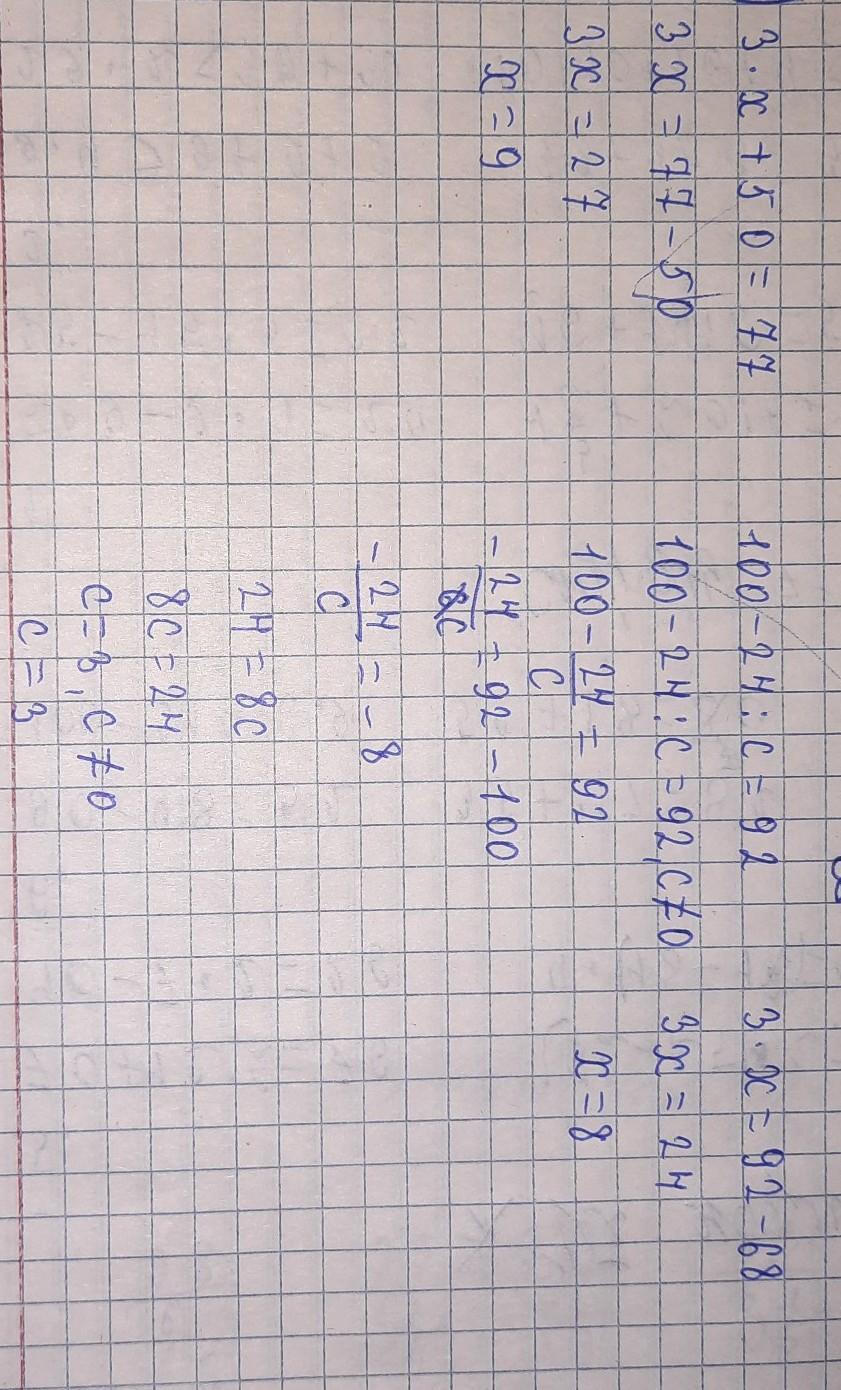 3·x+50=77
3x=77-50
3x=27
x=9
100-24:c=92
100-24:c=92, c≠0
100-24/c=92
-24/c=92-100
-24/c=-8
24=8c
8c=24
c=3, c≠0
c=3
3·x=92-68
3x=24
x=8